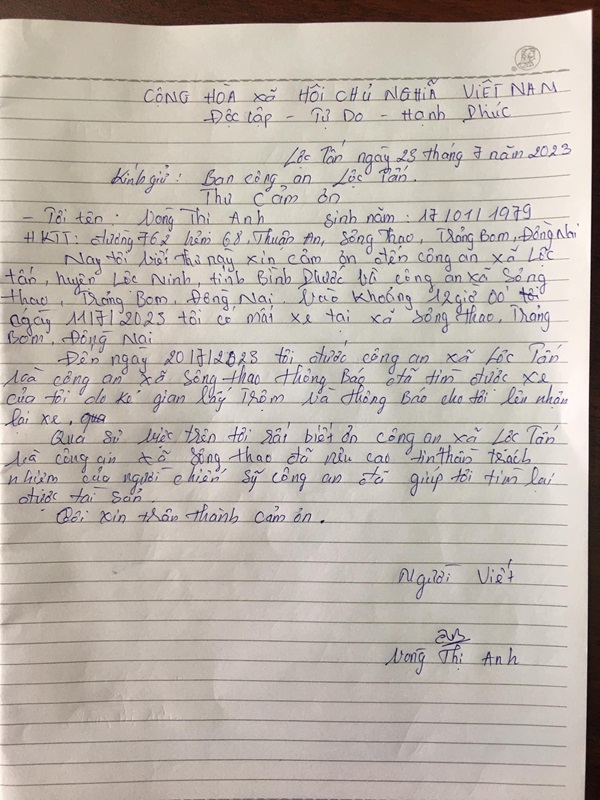 CỘNG HÒA XÃ HỘI CHỦ NGHĨA VIỆT NAM
Độc Lập - Tự Do - Hạnh Phúc
Lộc Tấn ngày 23 tháng 7 năm 2023
Kính gửi: Ban công an Lộc Tấn.
Thư Cảm ơn
- Tôi tên: Vong Thị Anh sinh năm: 17/01/1979
HKTT: đường 762 hẻm 68, Thuận An, Sông Thao, Trảng Bom, Đồng Nai
Nay tôi viết thư này xin cảm ơn đến công an xã Lộc
Tấn, huyện Lộc Ninh, tỉnh Bình Phước và công an xã Sông
Thao, Trảng Bom, Đồng Nai. Vào khoảng 12 giờ 00' tối
ngày 11/7/2023 tôi có mất xe tại xã Sông Thao, Trảng
Bom, Đồng Nai
Đến ngày 20/7/2023 tôi được công an xã Lộc Tấn
và công an xã Sông Thao thông báo đã tìm được xe
của tôi do kẻ gian lấy trộm và thông báo cho tôi lên nhận
lại xe.
Qua sự việc trên tôi rất biết ơn công an xã Lộc Tấn
và công an xã Sông Thao đã nêu cao tinh thần trách
nhiệm của người chiến sỹ công an đã giúp tôi tìm lại
được tài sản.
Tôi xin trân thành cảm ơn.
Người Viết
Vong Thị Anh